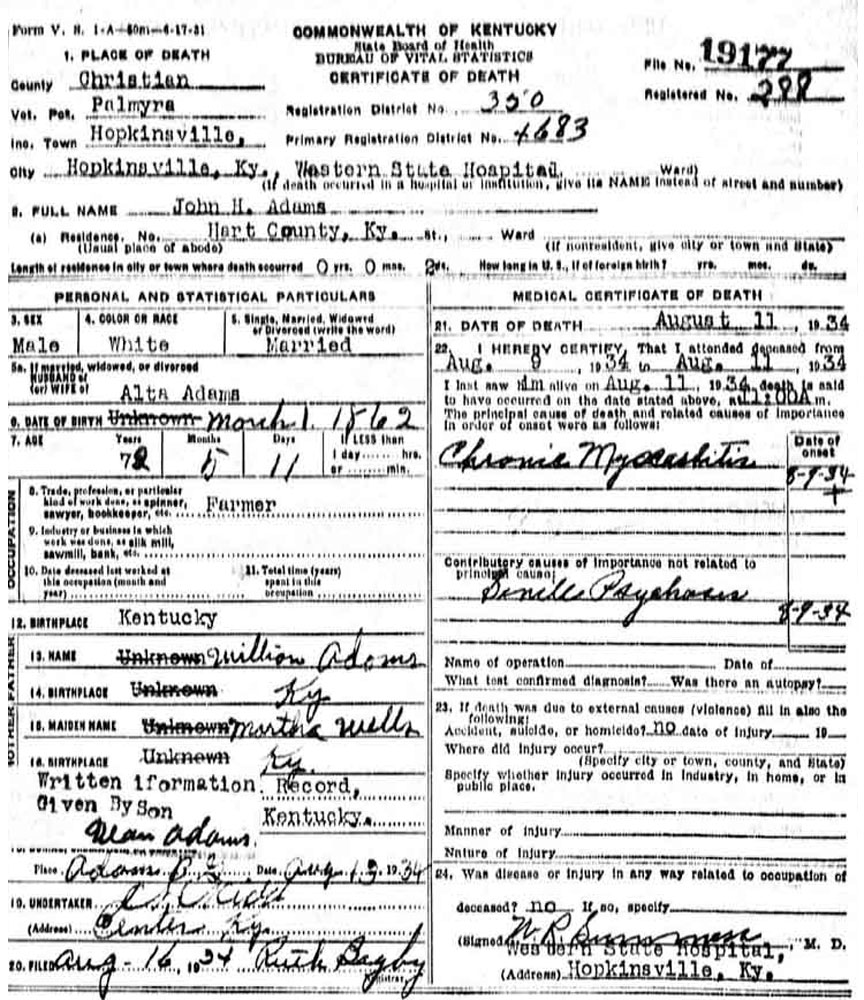 Form V. S. 1-A-50m-6-17-31
COMMONWEALTH OF KENTUCKY
State Board of Health
BUREAU OF VITAL STATISTICS
CERTIFICATE OF DEATH
File No. 19177
Registered No. 288
1. PLACE OF DEATH
County Christian
Vot. Pct. Palmyra
Registration District No. 350
Inc. Town Hopkinsville,
Primary Registration District No. 4683
City Hopkinsville, Ky., Western State Hospital. Ward)
(If death occurred in a hospital or institution, give its NAME instead of street and number)
2. FULL NAME John H. Adams
(a) Residence. No. Hart County, Ky. St., Ward
(Usual place of abode) (If nonresident, give city or town and State)
Length of residence in city or town where death occurred 0 yrs. 0 mos. 2 ds. How long in U. S., if of foreign birth? yrs. mos. ds.
PERSONAL AND STATISTICAL PARTICULARS
3. SEX 4. COLOR OR RACE 5. Single, Married, Widowed
or Divorced (write the word)
Male White Married
5a. If married, widowed, or divorced
HUSBAND of
(or) WIFE of Alta Adams
6. DATE OF BIRTH Unknown March 1. 1862
7. AGE Years Months Days If LESS than
1 day hrs.
or min.
72 5 11
OCCUPATION
8. Trade, profession, or particular
kind of work done, as spinner,
sawyer, bookkeeper, etc. Farmer
9. Industry or business in which
work was done, as silk mill,
sawmill, bank, etc.
10. Date deceased last worked at
this occupation (month and
year)
11. Total time (years)
spent in this
occupation
12. BIRTHPLACE Kentucky
FATHER
13. NAME Unknown Million Adams
14. BIRTHPLACE Unknown Ky
MOTHER
15. MAIDEN NAME Unknown Martha Wells
16. BIRTHPLACE Unknown Ky.
Written iformation Record,
Given By Son Kentucky.
Dean Adams.
Place Adams Date Aug 13 1934
19. UNDERTAKER
(Address) Center Ky.
20. FILED Aug-16, 1934 Ruth Bagby
Registrar.
MEDICAL CERTIFICATE OF DEATH
21. DATE OF DEATH August 11, 1934
22. I HEREBY CERTIFY, That I attended deceased from
Aug. 9, 1934 to Aug. 11, 1934
I last saw him alive on Aug. 11, 1934, death is said
to have occurred on the date stated above, at 11:00A.m.
The principal cause of death and related causes of importance
in order of onset were as follows:
Date of
onset
Chronic Myocarditis 8-9-34
+
Contributory causes of importance not related to
principal cause:
Senile Psychosis 8-9-34
Name of operation Date of
What test confirmed diagnosis? Was there an autopsy?
23. If death was due to external causes (violence) fill in also the
following:
Accident, suicide, or homicide? no date of injury 19
Where did injury occur?
(Specify city or town, county, and State)
Specify whether injury occurred in industry, in home, or in
public place.
Manner of injury
Nature of injury
24. Was disease or injury in any way related to occupation of
deceased? no If so, specify
(Signed) M. D.
Western State Hospital,
(Address) Hopkinsville, Ky.